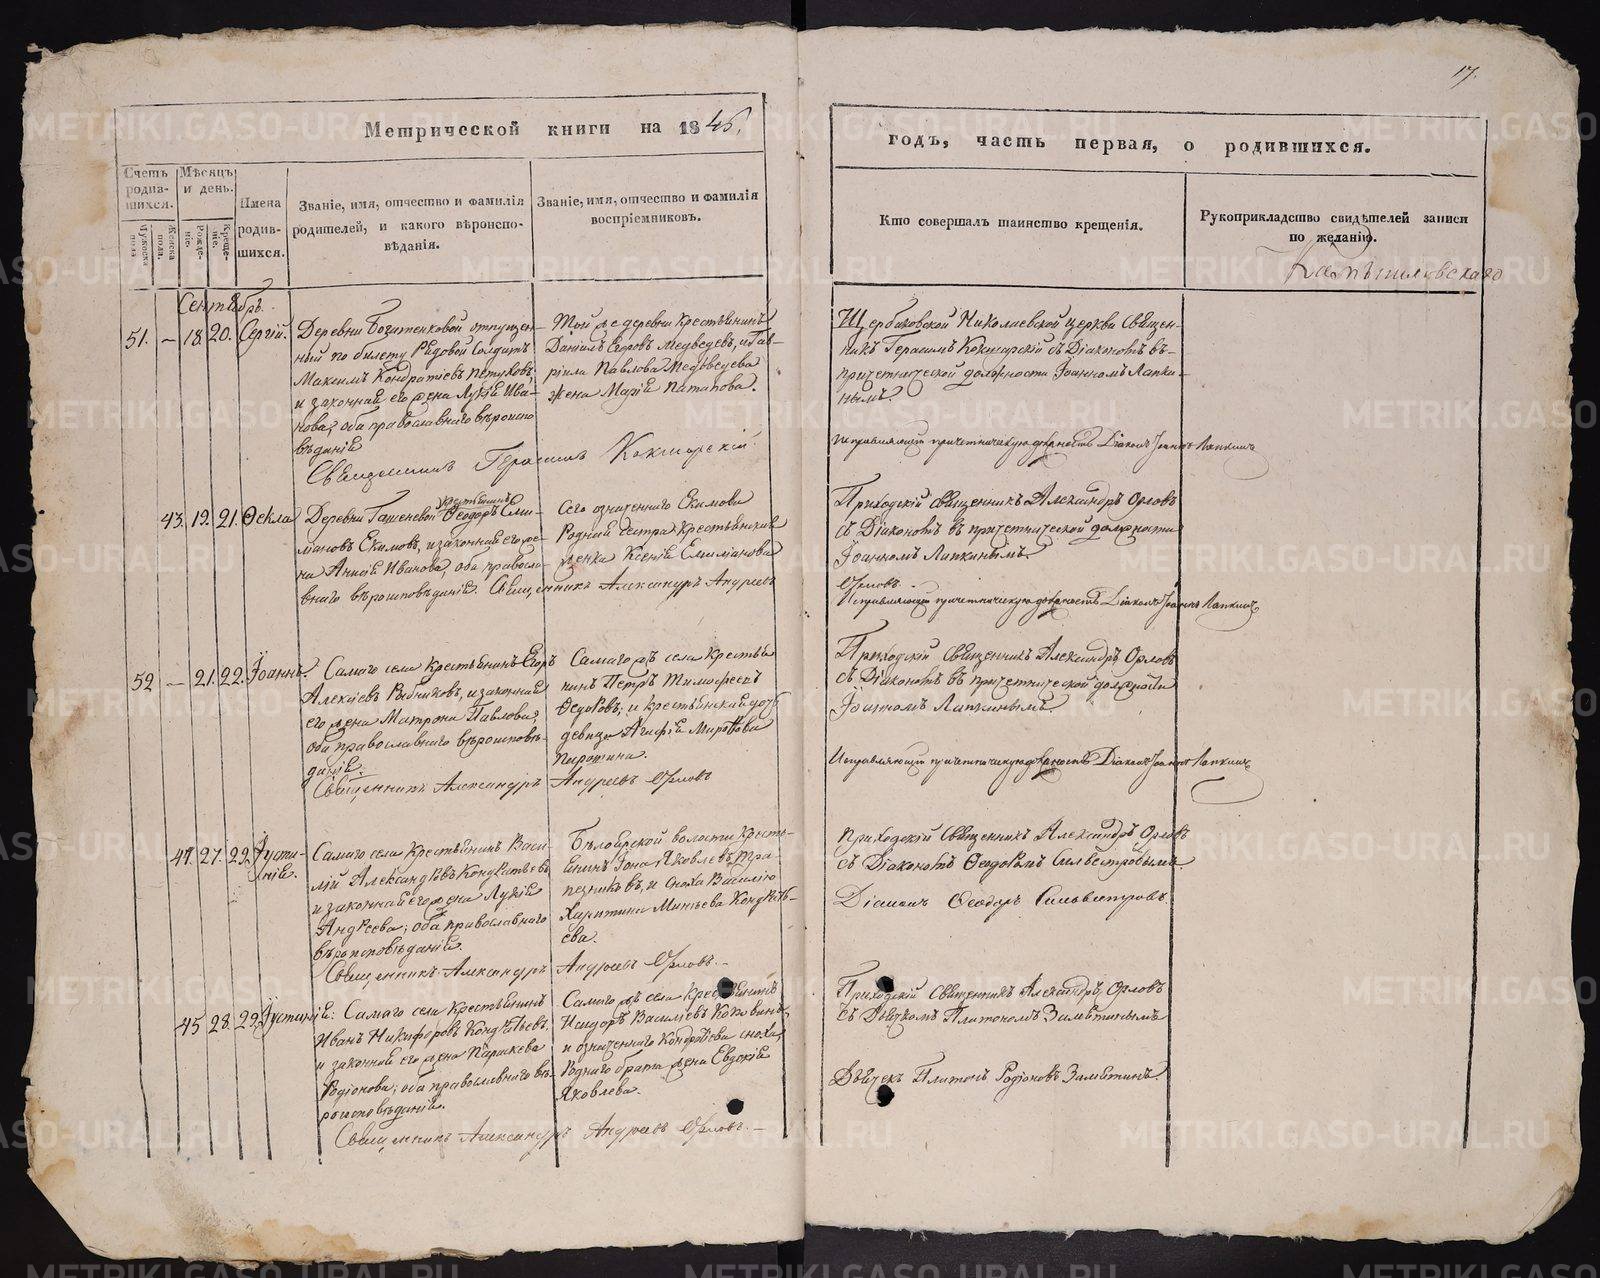 17.
Метрической книги на 1846.
годъ, часть первая, о родившихся.
Счетъ родившихся.
Мужеска пола
Женска пола.
Мѣсяцъ и день.
Рожденіе.
Крещеніе.
Имена родившихся.
Званіе, имя, отчество и фамилія родителей, и какого вѣроисповѣданія.
Званіе, имя, отчество и фамилія воспріемниковъ.
Кто совершалъ таинство крещенія.
Рукоприкладство свидѣтелей записи по желанію.
Сентябрь
51. – 18. 20. Сергій.
Деревни отпущен-
ный по билету Рядовой Солдатъ
Максимъ Кондратіевъ Пѣтуховъ,
и законная его жена Лукія Ива-
нова, оба православнаго вѣроиспо
вѣданія
Той же деревни Крестьянинъ
Даніилъ Егоровъ Медведевъ, и Гав-
ріила Павлова Медведева
жена Марія Патапова.
Щербаковской Николаевской церкви Священ-
никъ Герасимъ Кокшарскій съ Діакономъ въ-
причетнической должности Іоанномъ Лапки-
нымъ.
Священникъ Герасимъ Кокшарскій
Исправляющій причетническую должность Діаконъ Іоаннъ Лапкинъ
43. 19. 21. Ѳекла
Деревни крестьянинъ Ѳеодоръ Еми-
ліановъ Екимовъ, и законная его же-
на Анисія Иванова, оба правосла-
внаго вѣроисповѣданія. Священникъ Александръ Андреевъ
Сего означеннаго Екимова
Родная сестра Крестьянская
женка Ксенія Емиліанова
Приходскій Священникъ Александръ Орловъ
съ Діакономъ въ причетнической должности
Іоанномъ Лапкинымъ.
Орловъ.
Исправляющій причетническую должность Діаконъ Іоаннъ Лапкинъ
52 – 21. 22. Іоаннъ.
Самаго села Крестьянинъ Егоръ
Алексіевъ Рыбниковъ, и законная
его жена Матрона Павлова,
оба православнаго вѣроисповѣ-
данія.
Самаго жъ села Крестья
нинъ Петръ Тимофеевъ
Ѳедоровъ, и крестьянская дочь
девица Агафія Миронова
Приходскій Священникъ Александръ Орловъ
съ Діакономъ въ причетнической должности
Іоанномъ Лапкинымъ.
Священникъ Александръ Андреевъ Орловъ
Исправляющій причетническую должность Діаконъ Іоаннъ Лапкинъ
44. 27. 29. Іусти-
нія.
Самаго села Крестьянинъ Васи-
лій Александровъ Кондратьевъ
и законная его жена Лукія
Андреева, оба православнаго
вѣроисповѣданія.
волости Кресть-
янинъ Іона Яковлевъ Тра-
пезниковъ, и сноха Василію
Харитина Минѣева Кондрать-
ева.
Приходскій Священникъ Александръ Орловъ
съ Діакономъ Ѳеодоромъ Сильвестровымъ
Діаконъ Ѳеодоръ Сильвестровъ.
Священникъ Александръ Андреевъ Орловъ.
45 28. 29. Іустинія.
Самаго села Крестьянинъ
Иванъ Никифоровъ Кондратьевъ,
и законная его жена Параскева
Родіонова; оба православнаго вѣ-
роисповѣданія.
Самаго жъ села Крестьянинъ
Исидоръ Василіевъ Коковинъ,
и означеннаго Кондратіева сноха,
роднаго брата жена Евдокія
Яковлева.
Приходскій Священникъ Александръ Орловъ
съ Дьячкомъ Платономъ Замятинымъ
Дьячекъ Платонъ Родіоновъ Замятинъ.
Священникъ Александръ Андреевъ Орловъ.
METRIKI.GASO-URAL.RU